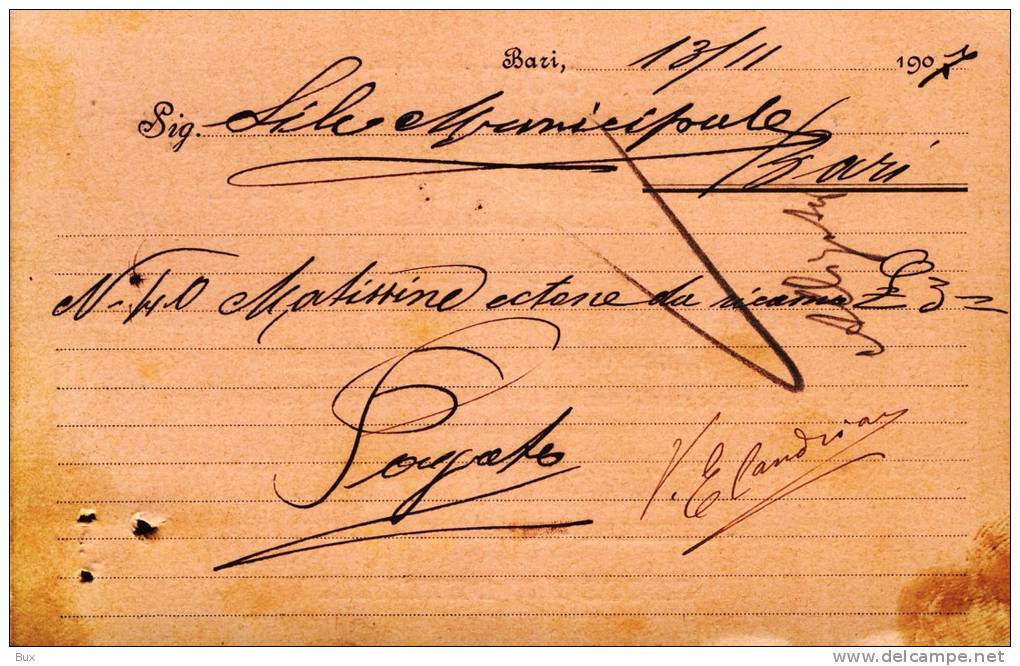 Bari, 13/11 1907
Sig. Municipale
Bari
N. 40 Matissine cotone da ricamo £ 3 =
Pagato
V. E
Bux
www.delcampe.net